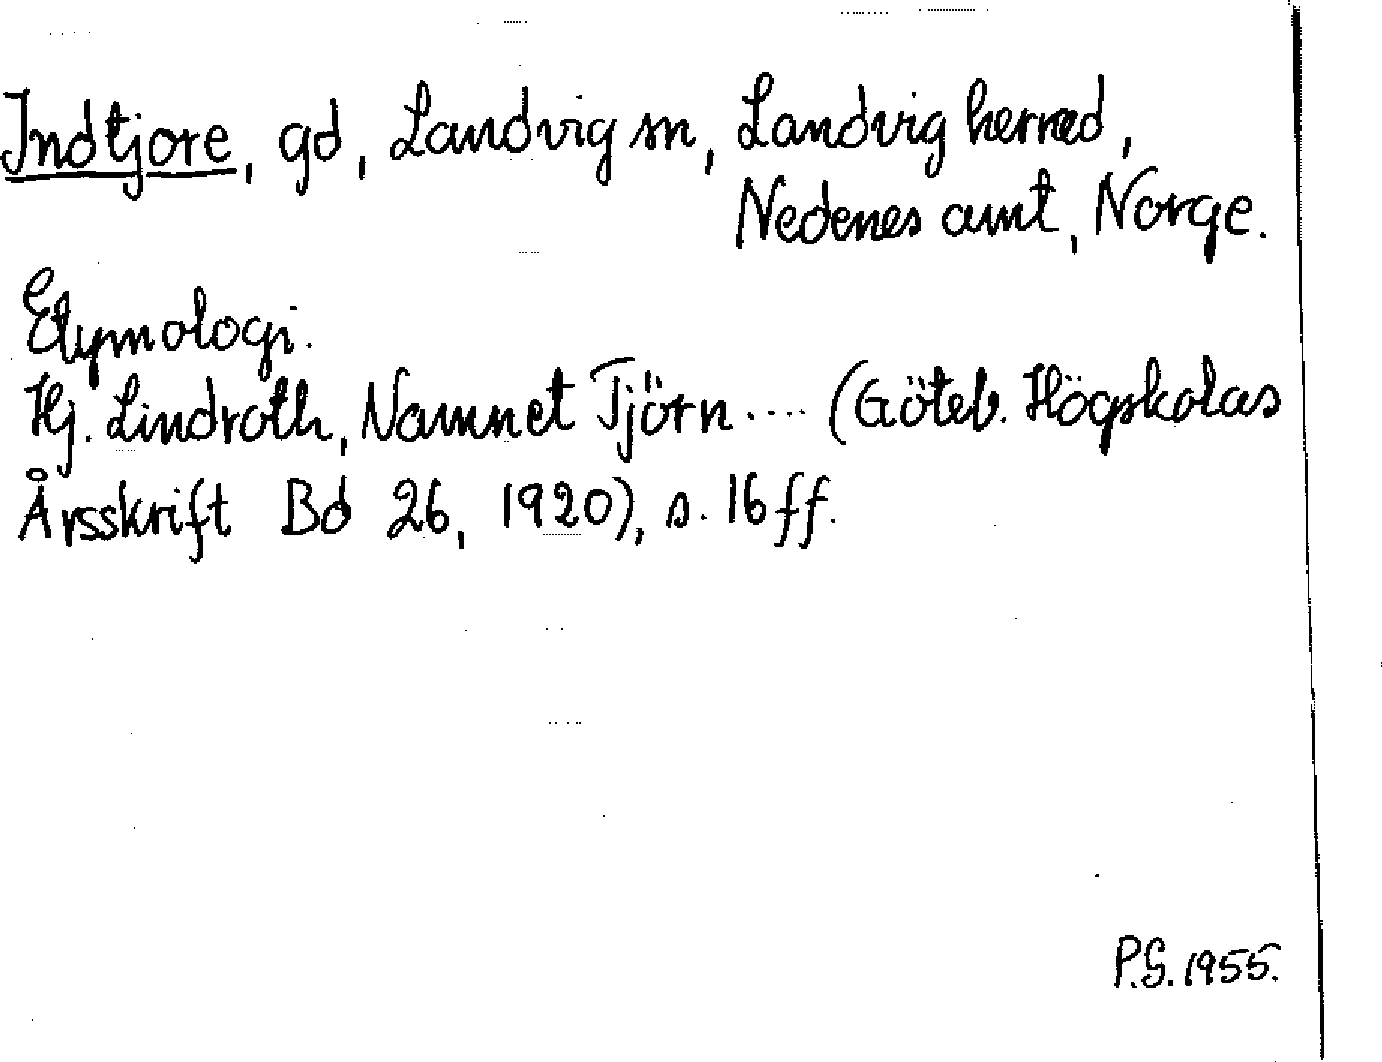 Indtjore, gd, Landvig sn, Landvig herred,
Nedenes amt, Norge.
Etymologi.
Hj. Lindroth, Namnet Tjörn .... (Göteb. Högskolas
Årsskrift Bd 26, 1920), s. 16 ff.
P.G. 1955.